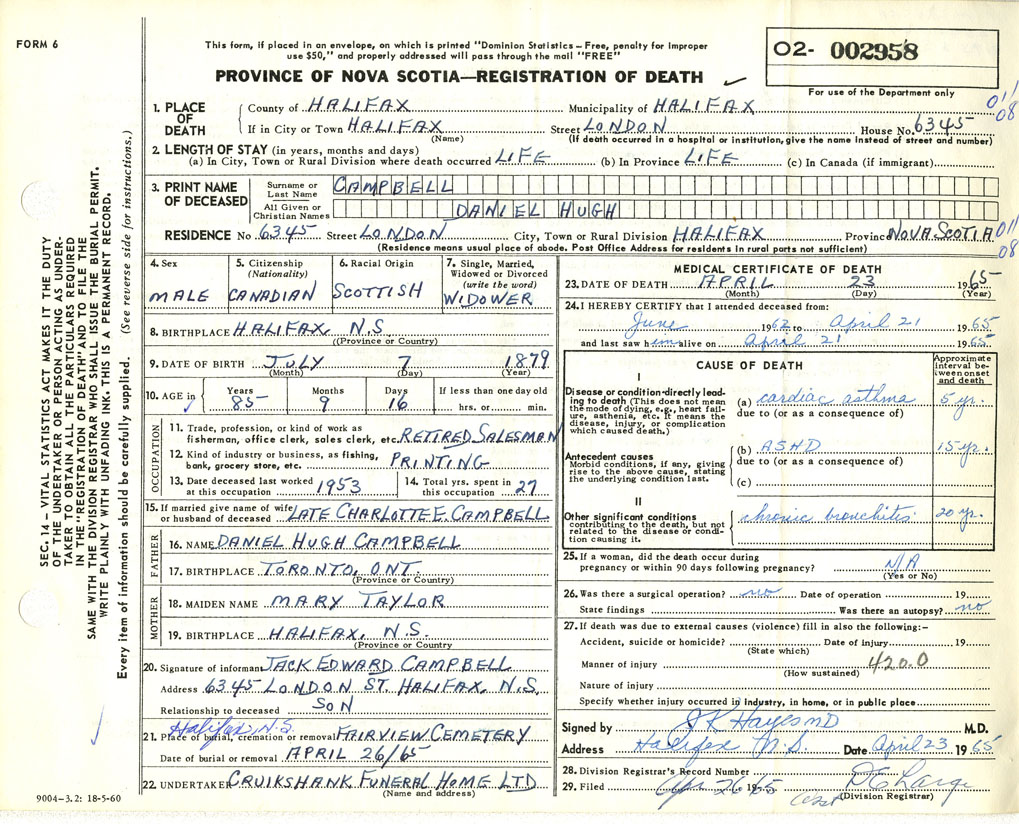 FORM 6
This form, if placed in an envelope, on which is printed "Dominion Statistics – Free, penalty for improper
use $50," and properly addressed will pass through the mail "FREE"
PROVINCE OF NOVA SCOTIA—REGISTRATION OF DEATH
02- 002958
For use of the Department only
011
08
1. PLACE OF DEATH
County of HALIFAX Municipality of HALIFAX
If in City or Town HALIFAX Street LONDON House No. 6345
(Name) (If death occurred in a hospital or institution, give the name instead of street and number)
2. LENGTH OF STAY (in years, months and days)
(a) In City, Town or Rural Division where death occurred LIFE (b) In Province LIFE (c) In Canada (if immigrant)
3. PRINT NAME OF DECEASED
Surname or Last Name CAMPBELL
All Given or Christian Names DANIEL HUGH
RESIDENCE No. 6345 Street LONDON City, Town or Rural Division HALIFAX Province NOVA SCOTIA
(Residence means usual place of abode. Post Office Address for residents in rural parts not sufficient)
011
08
4. Sex
MALE
5. Citizenship (Nationality)
CANADIAN
6. Racial Origin
SCOTTISH
7. Single, Married, Widowed or Divorced (write the word)
WIDOWER
8. BIRTHPLACE HALIFAX, N.S.
(Province or Country)
9. DATE OF BIRTH JULY 7 1879
(Month) (Day) (Year)
10. AGE in Years 85 Months 9 Days 16 If less than one day old hrs. or min.
OCCUPATION
11. Trade, profession, or kind of work as
fisherman, office clerk, sales clerk, etc. RETIRED SALESMAN
12. Kind of industry or business, as fishing,
bank, grocery store, etc. PRINTING
13. Date deceased last worked at this occupation 1953
14. Total yrs. spent in this occupation 27
15. If married give name of wife
or husband of deceased LATE CHARLOTTE E. CAMPBELL
FATHER
16. NAME DANIEL HUGH CAMPBELL
17. BIRTHPLACE TORONTO, ONT.
(Province or Country)
MOTHER
18. MAIDEN NAME MARY TAYLOR
19. BIRTHPLACE HALIFAX, N.S.
(Province or Country)
20. Signature of informant JACK EDWARD CAMPBELL
Address 6345 LONDON ST. HALIFAX, N.S.
Relationship to deceased SON
Halifax, N.S.
21. Place of burial, cremation or removal FAIRVIEW CEMETERY
Date of burial or removal APRIL 26/65
22. UNDERTAKER CRUIKSHANK FUNERAL HOME LTD
(Name and address)
MEDICAL CERTIFICATE OF DEATH
23. DATE OF DEATH APRIL 23 1965
(Month) (Day) (Year)
24. I HEREBY CERTIFY that I attended deceased from:
June 1962 to April 21 1965
and last saw him alive on April 21 1965
CAUSE OF DEATH
Approximate interval between onset and death
I
Disease or condition directly leading to death (This does not mean the mode of dying, e.g., heart failure, asthenia, etc. It means the disease, injury, or complication which caused death.)
(a) cardiac asthma 5 yr.
due to (or as a consequence of)
Antecedent causes
Morbid conditions, if any, giving rise to the above cause, stating the underlying condition last.
(b) ASHD 15 yr.
due to (or as a consequence of)
(c)
II
Other significant conditions
contributing to the death, but not related to the disease or condition causing it.
chronic bronchitis 20 yr.
25. If a woman, did the death occur during
pregnancy or within 90 days following pregnancy? N/A
(Yes or No)
26. Was there a surgical operation? no Date of operation 19
State findings Was there an autopsy? no
27. If death was due to external causes (violence) fill in also the following:–
Accident, suicide or homicide? Date of injury 19
(State which)
Manner of injury 4200
(How sustained)
Nature of injury
Specify whether injury occurred in industry, in home, or in public place
Signed by J K Hayes MD M.D.
Address Halifax N.S. Date April 23 1965
28. Division Registrar's Record Number
29. Filed Apr 26 1965 D E Large
(Division Registrar)
SEC. 14 – VITAL STATISTICS ACT MAKES IT THE DUTY
OF THE UNDERTAKER OR PERSON ACTING AS UNDER-
TAKER TO OBTAIN ALL THE PARTICULARS REQUIRED
IN THE "REGISTRATION OF DEATH" AND TO FILE THE
SAME WITH THE DIVISION REGISTRAR WHO SHALL ISSUE THE BURIAL PERMIT.
WRITE PLAINLY WITH UNFADING INK. THIS IS A PERMANENT RECORD.
Every item of information should be carefully supplied. (See reverse side for instructions.)
9004-3.2: 18-5-60